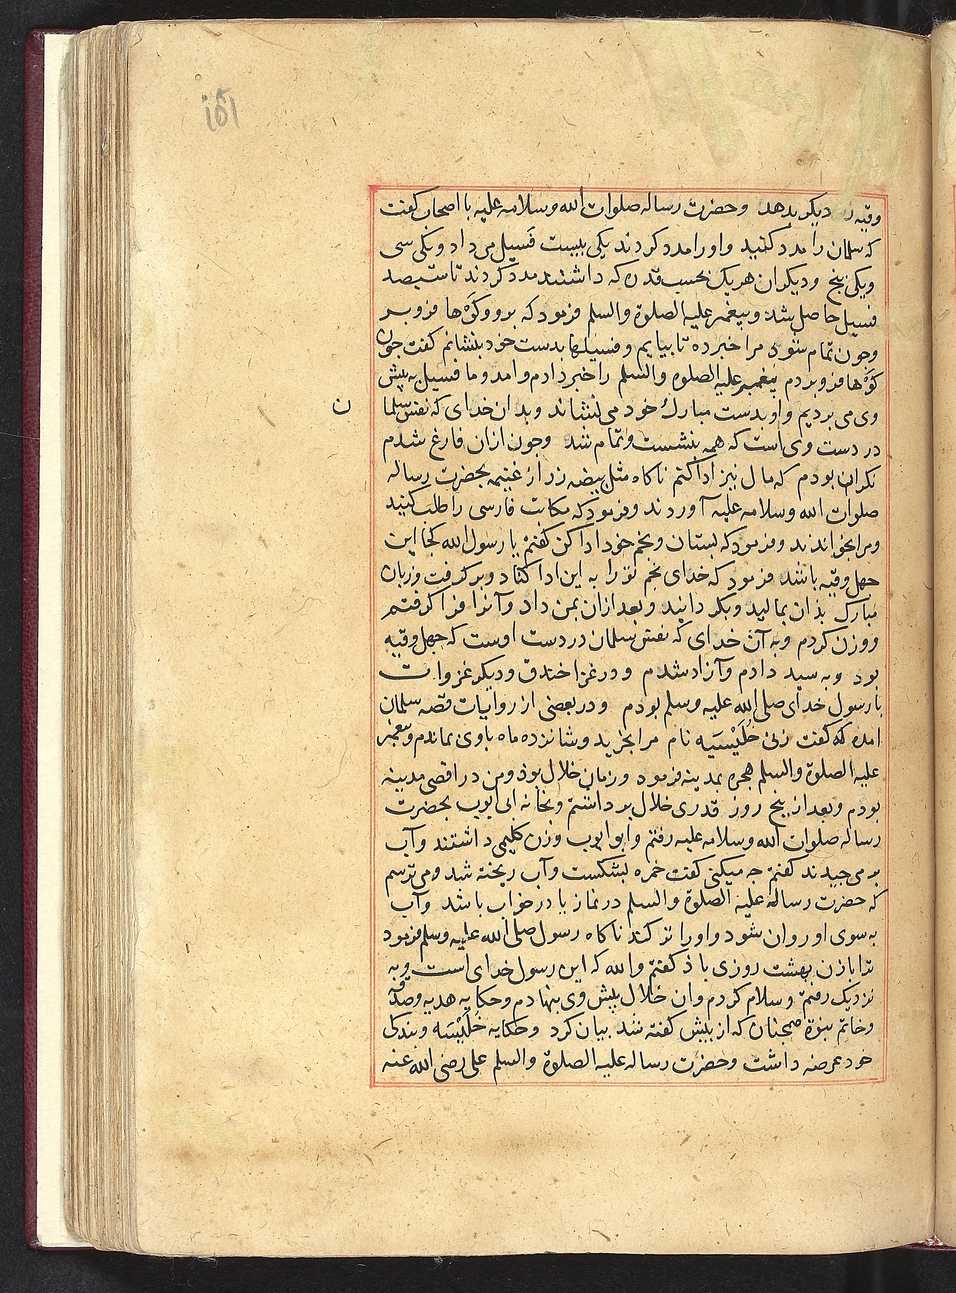 ١٥١
وقیه زر دیکر بدهد و حضرت رسالة صلوات الله وسلامه علیه با اصحاب کفت
که سلمان را مدد کنید و او را مدد کردند یکی بیست فَسیل می داد و یکی سی
و یکی پنج و دیکران هر یک بحسب قدرت که داشتند مدد کردند تا سیصد
فسیل حاصل شد و پیغمبر علیه الصلوة والسلم فرمود که برو و کَوْها فرو بر
و چون تمام شود مرا خبر ده تا بیایم و فسیلها بدست خود بنشانم کفت چون
کَوْها فرو بردم پیغمبر علیه الصلوة والسلم را خبر دادم و امد و ما فسیل به پیش
وی می بردیم و او بدست مبارک خود می نشاند و بدان خدای که نفس سلما
ن
در دست وی است که همه بنشست و تمام شد و چون ازان فارغ شدم
نکران بودم که مال نیز ادا کنم ناکاه مثل بیضه زر از غنیمه بحضرت رسالة
صلوات الله وسلامه علیه آوردند و فرمود که مکاتب فارسی را طلب کنید
و مرا بخواندند و فرمود که بستان و نجم خود ادا کن کفتم یا رسول الله کجا این
چهل وقیه باشد فرمود که خدای نجم تو را به این ادا کناد و بر کرفت و زبان
مبارک بذان بمالید و بکردانید و بعد ازان بمن داد و آنرا فرا کرفتم
و وزن کردم و به آن خدای که نفس سلمان در دست اوست که چهل وقیه
بود و به سید دادم و آزاد شدم و در غزا خندق و دیکر غزوات
با رسول خدای صلی الله علیه وسلم بودم و در بعضی از روایات قصه سلمان
امده که کفت زنی خُلَیْسَیه نام مرا بخرید و شانزده ماه با وی بماندم و پیغمبر
علیه الصلوة والسلم هجره بمدینه فرمود و زمان خلال بود و من در اقصی مدینه
بودم و بعد از پنج روز قدری خلال برداشتم و بخانه ابی ایوب بحضرت
رسالة صلوات الله وسلامه علیه رفتم و ابو ایوب و زن کلیمی داشتند و آب
بر می چیدند کفتم چه میکنی کفت خمره بشکست و آب ریخته شد و می ترسم
که حضرت رسالة علیه الصلوة والسلم در نماز یا در خواب باشد و آب
به سوی او روان شود و او را تر کند ناکاه رسول صلی الله علیه وسلم فرمود
ترا با زن بهشت روزی باذ کفتم والله که این رسول خدای است و به
نزدیک رفتم و سلام کردم و ان خلال پیش وی بنهادم و حکایه هدیه و صدقه
و خاتم نبوة همچنان که از پیش کفته شد بیان کرد و حکایه خُلَیْسَه و بندکی
خود عرضه داشت و حضرت رسالة علیه الصلوة والسلم علی رضی الله عنه